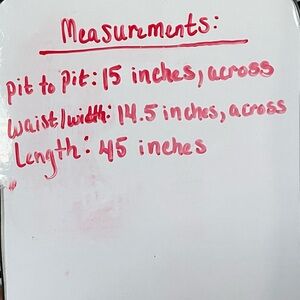 Measurements:
Pit to Pit: 15 inches, across
Waist/width: 14.5 inches, across
Length: 45 inches